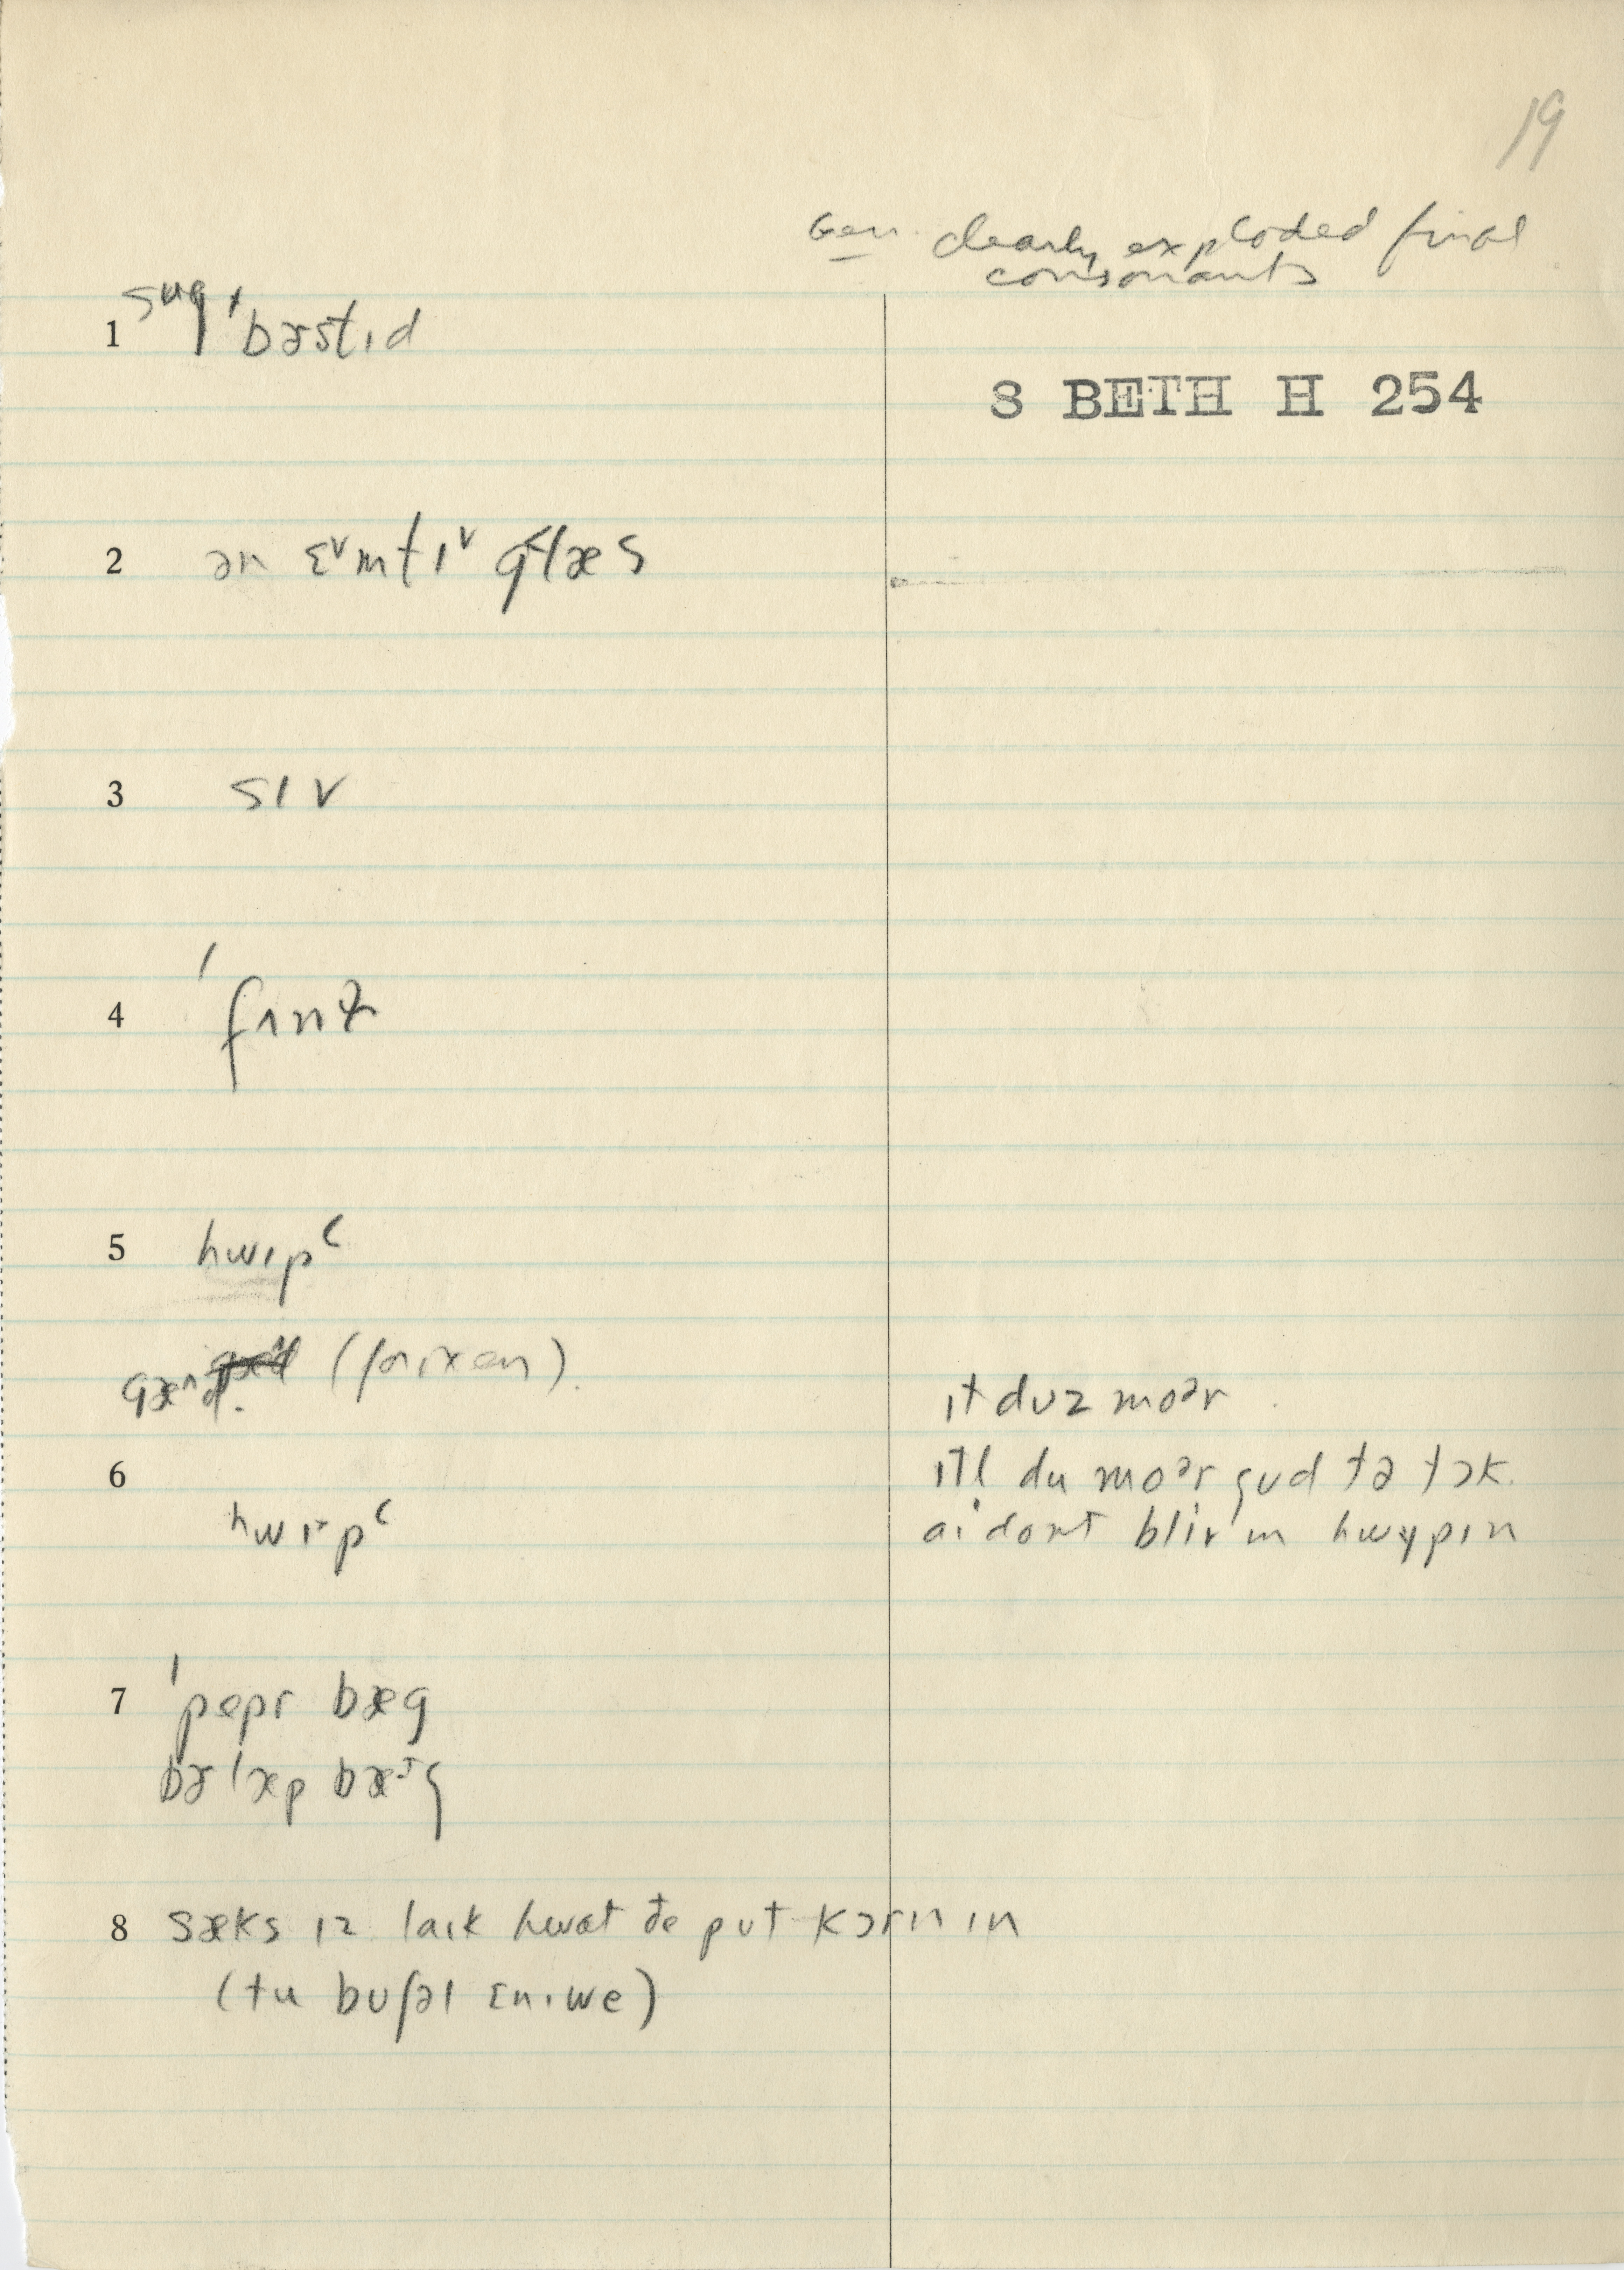 19
Gen. clearly exploded final
consonants
1 ˈbɚstɪd
S BETH H 254
2 ən ɛ˅mtɪ˅ g˂læs
3 sɪv
4 ˈfʌnɫ
5 hwɪpʿ
gæˑnd.
ɪt dʊz moər
6 ɪtl du moər gʊd tə tɔk.
hwɪpʿ
aɪ dont bliv ɪn hwɪpɪn
7 ˈpepr bæg
bɚlæp bæg
8 sæks ɪz laɪk hwat ðe pʊt kɔrn ɪn
(tu bʊʃəl ɛnɪwe)